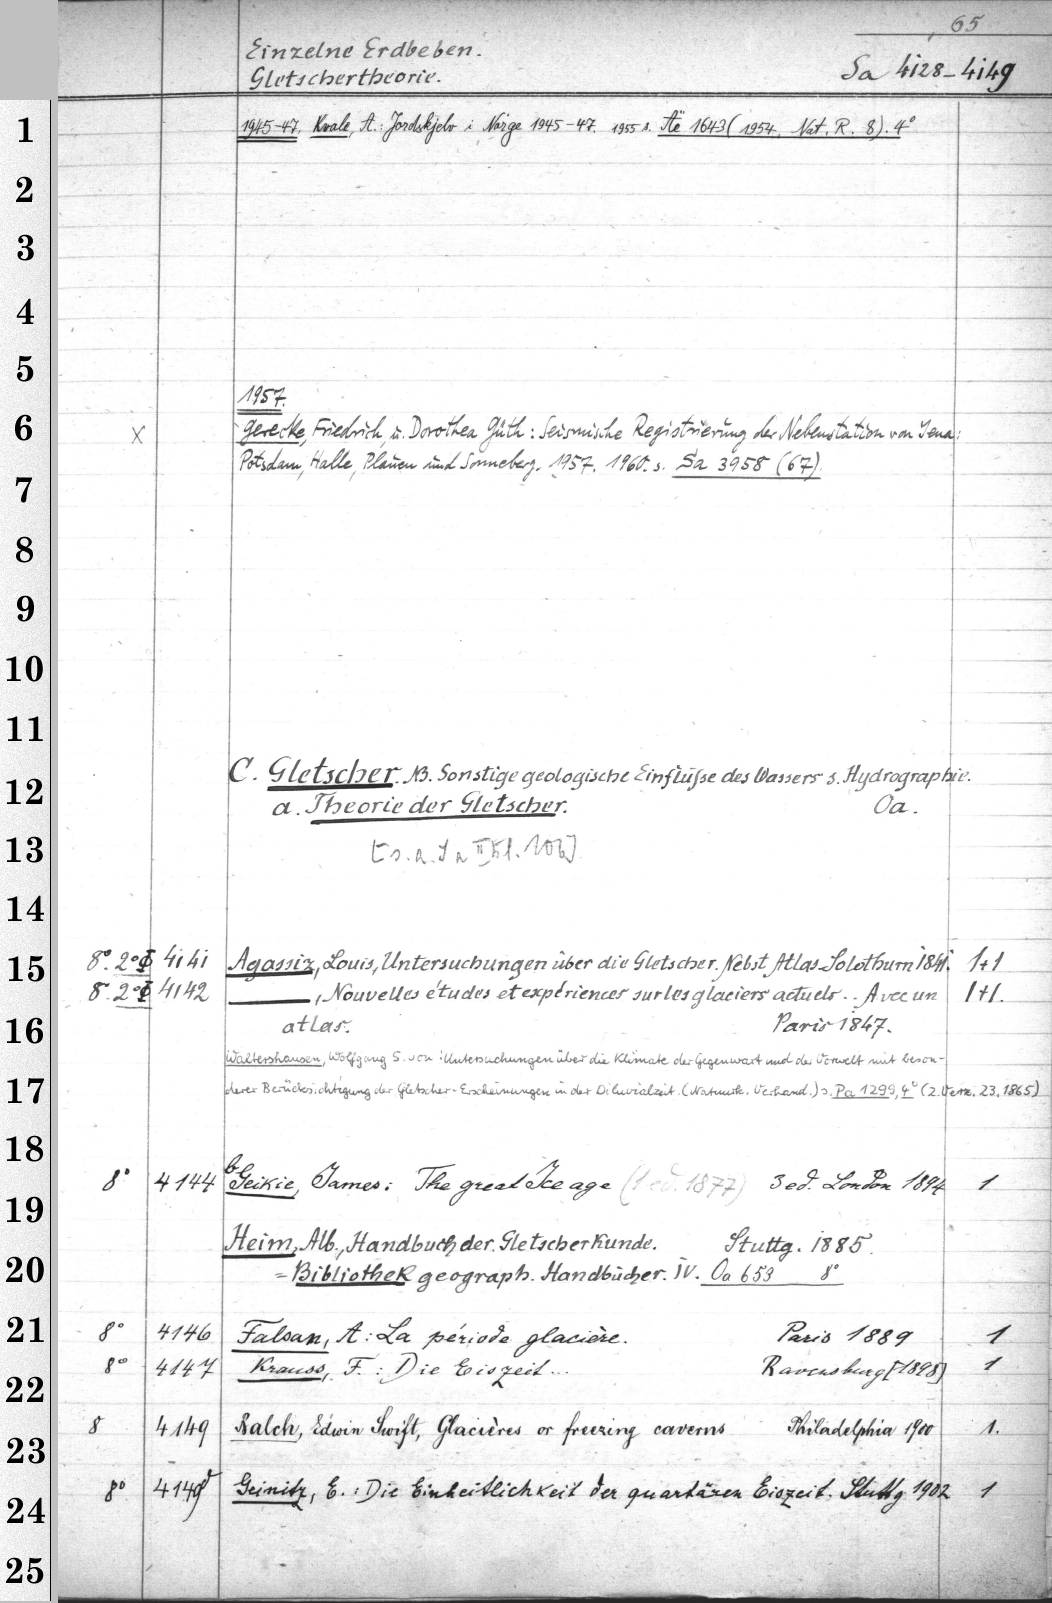 65
Einzelne Erdbeben.
Gletschertheorie.
Sa 4128-4149
1
1945-47. Kvale, A.: Jordskjelv i Norge 1945-47. 1955 s. Äë 1643 (1954, Nat. R. 8). 4°
2
3
4
5
1957.
6
X Gerecke, Friedrich, u. Dorothea Güth: Seismische Registrierung der Nebenstation von Jena:
Potsdam, Halle, Plauen und Sonneberg. 1957. 1960. s. Sa 3958 (67).
7
8
9
10
11
C. Gletscher. NB. Sonstige geologische Einflüsse des Wassers s. Hydrographie.
12
a. Theorie der Gletscher. Oa.
13
[s. a.
14
15
8°. 2° 4141 Agassiz, Louis, Untersuchungen über die Gletscher. Nebst Atlas. Solothurn 1841. 1+1
8°. 2° 4142 ———, Nouvelles études et expériences sur les glaciers actuels.. Avec un 1+1.
16
atlas. Paris 1847.
Waltershausen, Wolfgang S. von: Untersuchungen über die Klimate der Gegenwart und der Vorwelt mit beson-
17
derer Berücksichtigung der Gletscher-Erscheinungen in der Diluvialzeit. (Natuurk. Verhand.) s. Pa 1299, 4° (2. Verz. 23. 1865)
18
8° 4144 b Geikie, James: The great Ice age (1 ed. 1877) 3 ed. London 1894 1
19
Heim, Alb., Handbuch der Gletscherkunde. Stuttg. 1885.
20
= Bibliothek geograph. Handbücher. IV. Oa 653 8°
21
8° 4146 Falsan, A: La période glacière. Paris 1889 1
8° 4147 Krauss, F.: Die Eiszeit... Ravensburg [1898] 1
22
8 4149 Balch, Edwin Swift, Glacières or freezing caverns Philadelphia 1900 1.
23
8° 4149d Geinitz, E.: Die Einheitlichkeit der quartären Eiszeit. Stuttg 1902 1
24
25